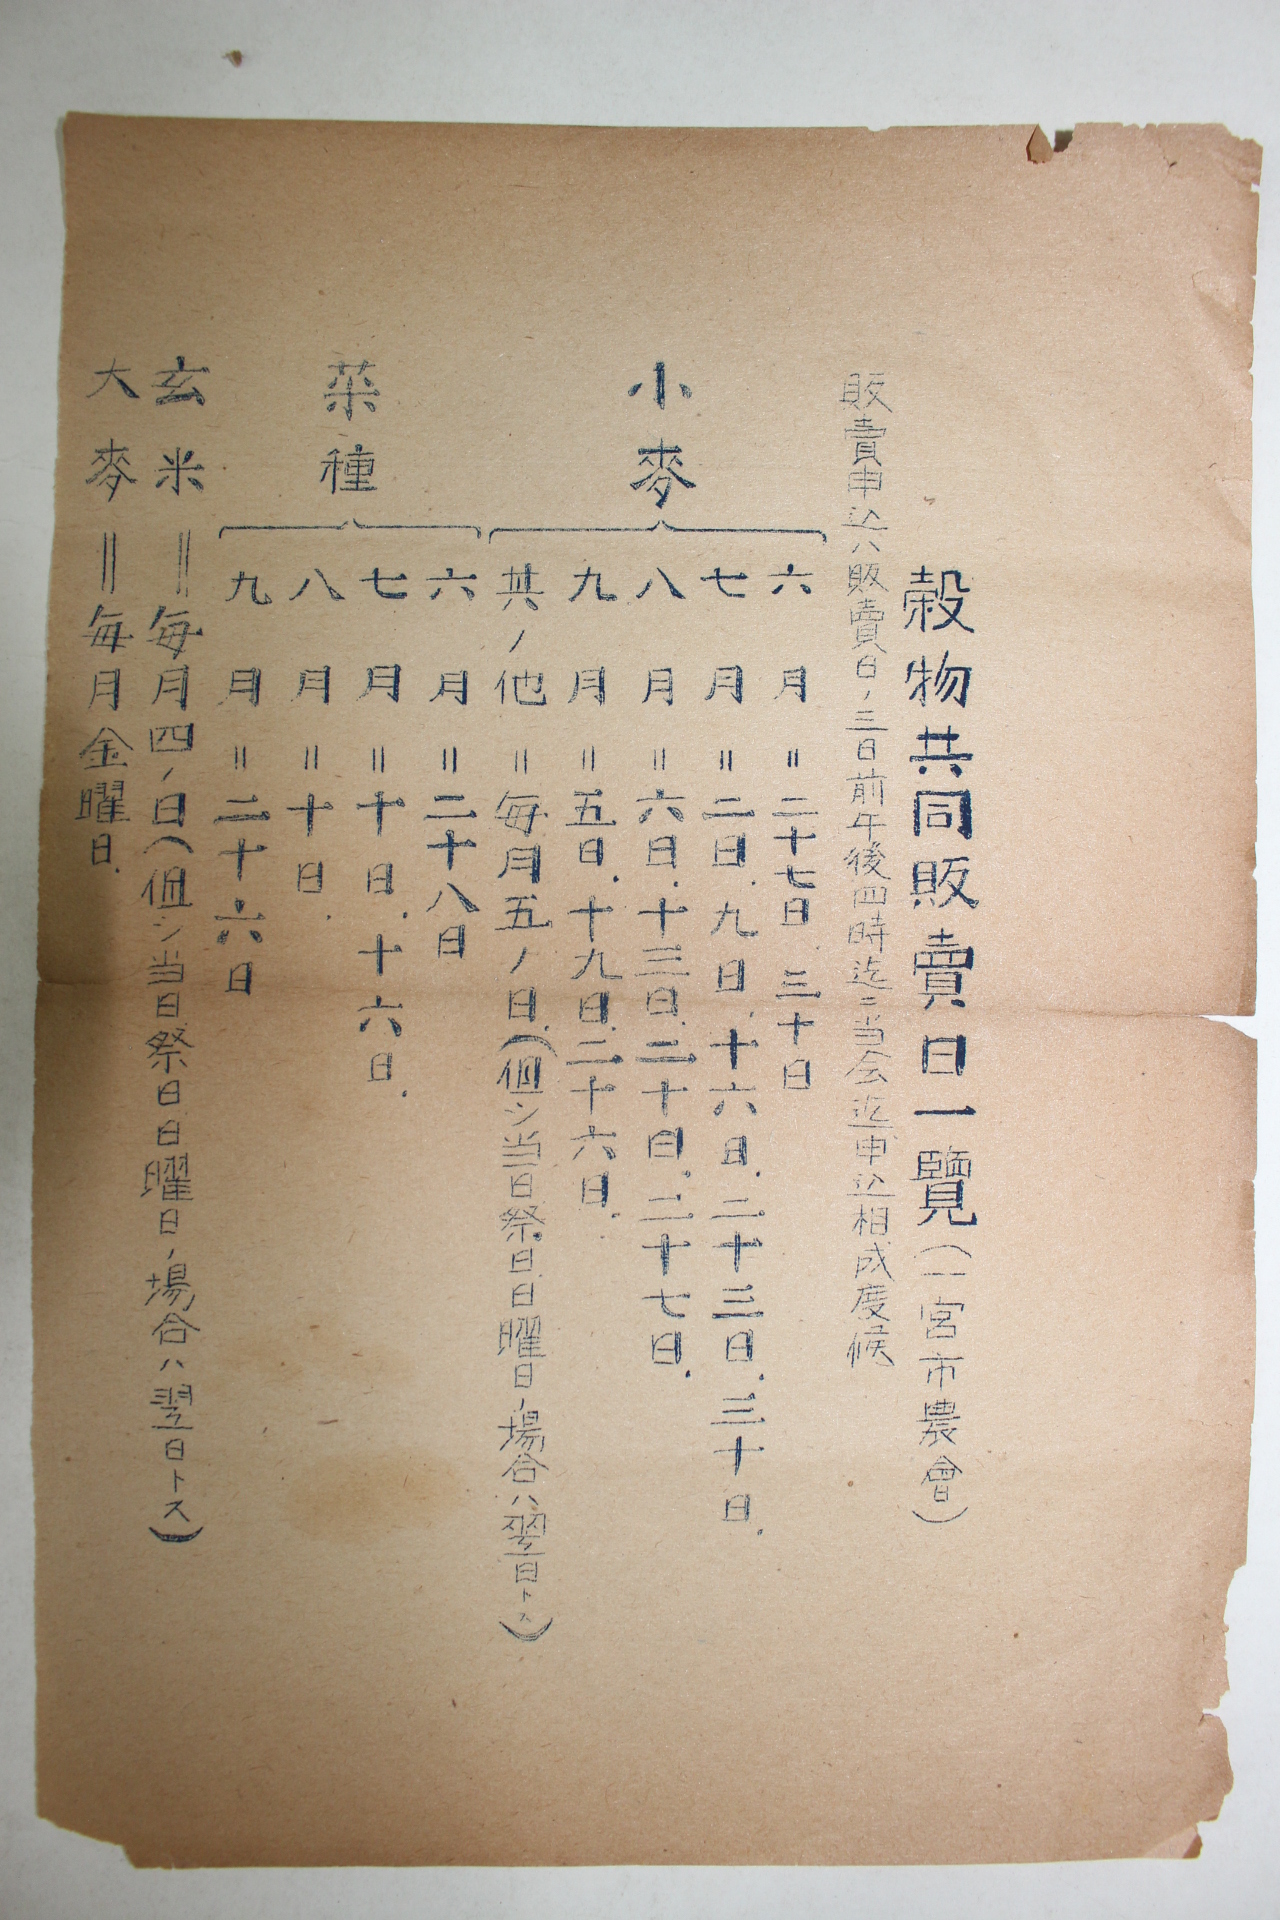 穀物共同販賣日一覽(一宮市農會)
販賣申込ハ販賣日ノ三日前午後四時迄ニ当会迄申込相成度候
小麥
六月=二十七日.三十日
七月=二日.九日.十六日.二十三日.三十日.
八月=六日.十三日.二十日.二十七日.
九月=五日.十九日.二十六日.
其ノ他=每月五ノ日(但シ当日祭日日曜日ノ場合ハ翌日トス)
菜種
六月=二十八日
七月=十日.十六日.
八月=十日.
九月=二十六日
玄米=每月四ノ日(但シ当日祭日日曜日ノ場合ハ翌日トス)
大麥=每月金曜日.